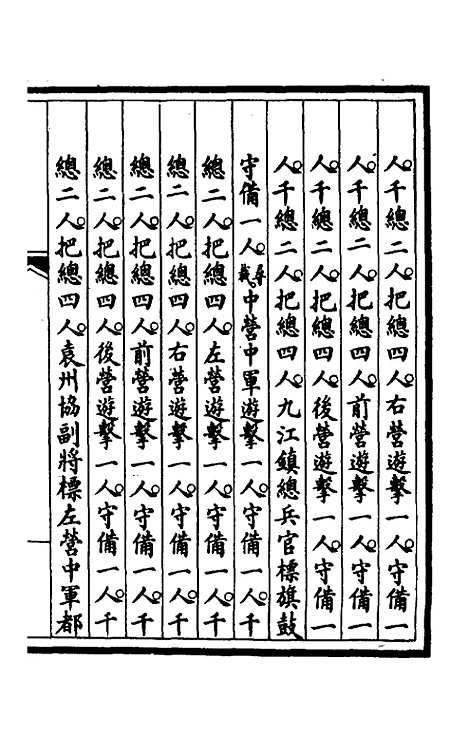 人千總二人把總四人右營遊擊一人守備一
人千總二人把總四人前營遊擊一人守備一
人千總二人把總四人後營遊擊一人守備一
人千總二人把總四人九江鎮總兵官標旗鼓
守備一人尋裁中營中軍遊擊一人守備一人千
總二人把總四人左營遊擊一人守備一人千
總二人把總四人右營遊擊一人守備一人千
總二人把總四人前營遊擊一人守備一人千
總二人把總四人後營遊擊一人守備一人千
總二人把總四人袁州協副將標左營中軍都